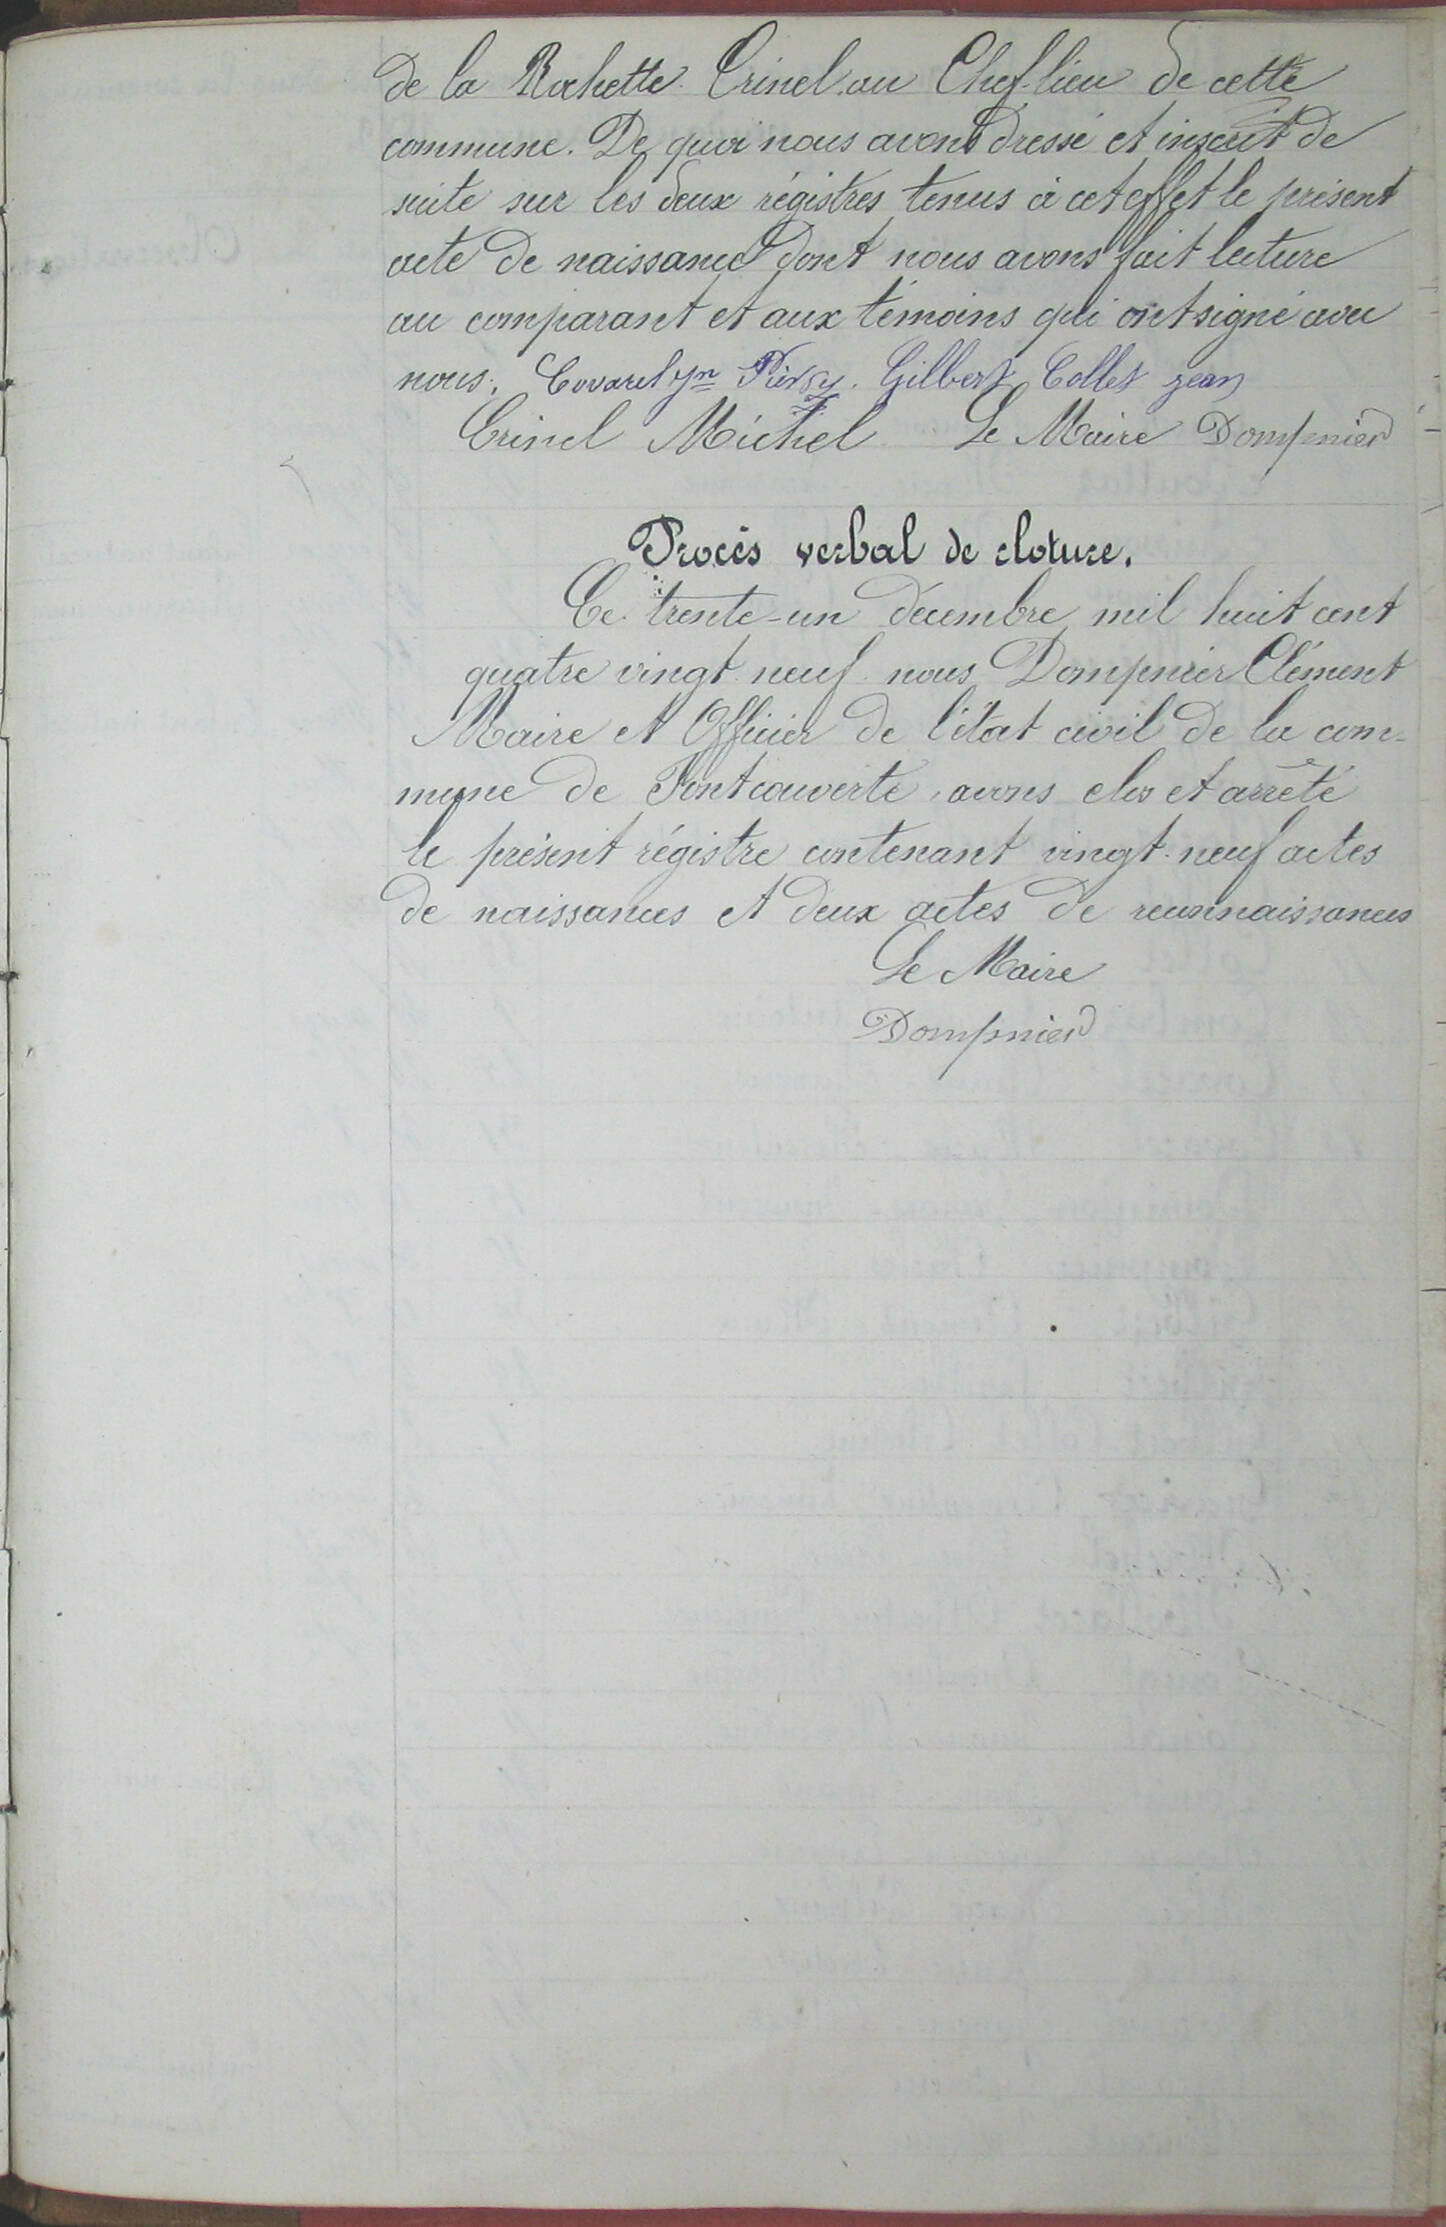 de la Rochette Crinel au Chef-lieu de cette
commune. De quoi nous avons dressé et inscrit de
suite sur les deux régistres tenus à cet effet le présent
acte de naissance dont nous avons fait lecture
au comparant et aux témoins qui ont signé avec
nous. Covarel Jn Pierre. Gilbert Collet jean
Crinel Michel Le Maire Dompnier
Procès verbal de cloture.
Ce trente-un décembre mil huit cent
quatre vingt neuf nous Dompnier Clément
Maire et Officier de l'état civil de la com-
mune de Fontcouverte, avons clos et arrêté
le présent régistre contenant vingt-neuf actes
de naissances et deux actes de reconnaissances
Le Maire
Dompnier